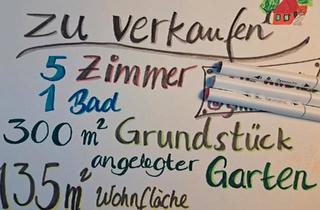 zu verkaufen
5 Zimmer
1 Bad
300 m² Grundstück
angelegter Garten
135 m² Wohnfläche